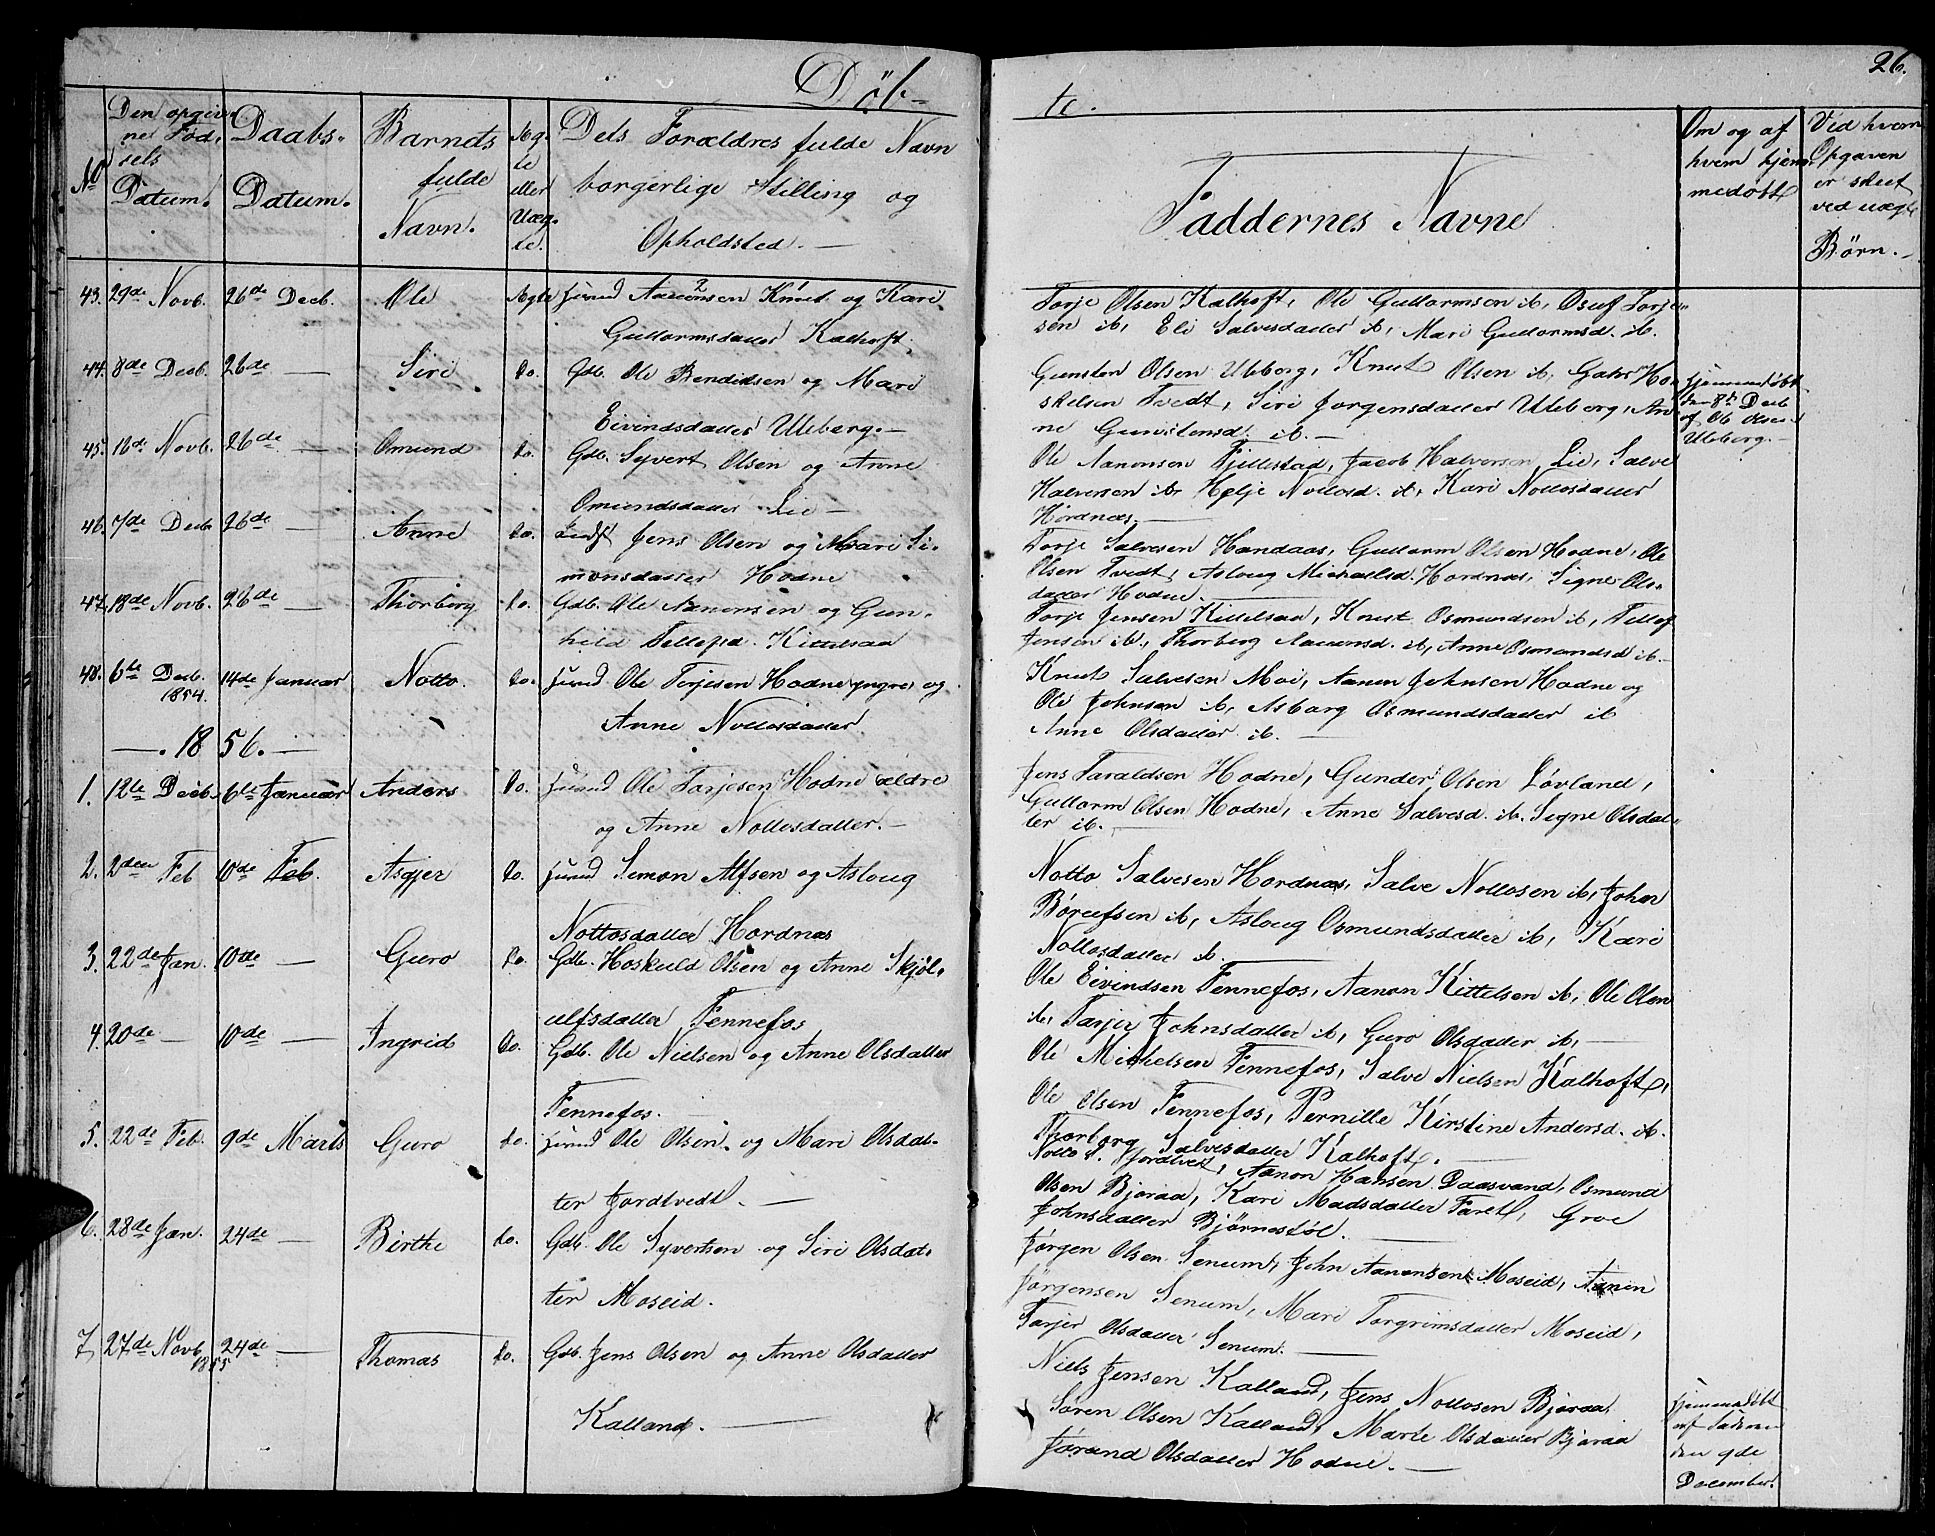 Döb-
te.
26.
No
Den opgiv-
ne Föd-
sels
Datum.
Daabs-
Datum.
Barnets
fulde
Navn.
Ægte
eller
Uægte.
Dets Forældres fulde Navn
borgerlige Stilling og
Opholdsted. —
Faddernes Navne
Om og af
hvem hjem-
medöbt
Ved hvem
Opgaven
er skeet
ved uægte
Börn. —
43. 29de Novb. 26de Decb. Ole Ægte Aanonsen Knut og Kari
Guttormsdatter Kalhoft.
Torje Olsen Kalhoft, Ole Guttormsen ib, Osuf Torje-
sen ib, Eli Salvesdatter ib, Mari Guttormsd. ib.
44. 8de Decb. 26de — Siri do. Gdb. Ole Bendidsen og Mari
Eivindsdatter Uleberg. —
Gunsten Olsen Uleberg, Knut Olsen ib, Ho-
skelsen Tvedt, Siri Jorgensdatter Uleberg, An-
ne Gunstensd. ib. —
hjemmedöbt
den 8de Decb
af Ole Olsen
Uleberg. —
45. 16de Novb. 26de — Omund do. Gdb. Syvert Olsen og Anne
Omundsdatter Lie —
Ole Aanonsen Fjellestad, Jacob Halvorsen Lie, Salve
Halvorsen ib, Helje Nottosd. ib, Kari Nottosdatter
Hordnes. —
46. 7de Decb 26de — Anne do. Jens Olsen og Mari Si-
monsdatter Hodne
Torje Salvesen Handaas, Guttorm Olsen Hodne, Ole
Olsen Tvedt, Asloug Michaelsd. Hordnes, Signe Ols-
datter Hodne. —
47. 18de Novb. 26de — Thorborg do. Gdb. Ole Aanonsen og Gun-
hild Tellefsd. Kittelsaa
Torje Jensen Kittelsaa, Knut Osmundsen ib, Tellef
Jensen ib, Thorberg Aanonsd. ib, Anne Osmundsd ib. —
48. 6te Decb. 1854. 14de Januar Notto do. Ole Torjesen Hodne yngre og
Anne Nottosdatter.
Knut Salvesen Moi, Aanon Johnsen Hodne og
Ole Johnsen ib, Asborg Osmundsdatter ib
Anne Olsdatter ib. —
—. 1856. —
1. 12te Decb. 6te Januar Anders do. Ole Torjesen Hodne ældre
og Anne Nottosdatter. —
Jens Taraldsen Hodne, Gunder Olsen Lövland,
Guttorm Olsen Hodne, Anne Salvesd. ib. Signe Olsdat-
ter ib. —
2. 2den Feb 10de Feb. Asgjer do. Simon Alfsen og Asloug
Nottosdatter Hordnes
Notto Salvesen Hordnes, Salve Nottosen ib, John
Börufsen ib, Asloug Osmundsdatter ib, Kari
Nottosdatter ib. —
3. 22de Jan. 10de — Guro do. Gdb. Hoskuld Olsen og Anne Skjöl-
ulfsdatter Fennefos
Ole Eivindsen Fennefos, Aanon Kittelsen ib, Ole Olsen
ib, Tarjer Johnsdatter ib, Guro Olsdatter ib, —
4. 20de — 10de — Ingrid do. Gdb. Ole Nielsen og Anne Olsdatter
Fennefos. —
Ole Mikkelsen Fennefos, Salve Nielsen Kalhoft,
Ole Olsen Fennefos, Pernille Kirstine Andersd. ib.
Thorborg Salvesdatter Kalhoft. —
5. 22de Feb. 9de Marts Guro do. Ole Olsen og Mari Olsdat-
ter Jordtvedt. —
Notto S. Jordtvet, Aanon Hansen Daasvand, Osmund
Olsen Bjoraa, Kari Madsdatter Faret, Groe
Johnsdatter Björnestöl. —
6. 28de Jan. 24de — Birthe do. Gdb. Ole Syvertsen og Siri Olsdat-
ter Moseid.
Jörgen Olsen Senum, John Aanonsen Moseid, Aanon
Jörgensen Senum, Mari Torgrimsdatter Moseid,
Tarjer Olsdatter Senum. —
7. 27de Novb. 1855 24de — Thomas do. Gdb. Jens Olsen og Anne Olsdatter
Kalland. —
Niels Jensen Kalland, Jens Nottosen Bjoraa,
Sören Olsen Kalland, Marte Olsdatter Bjoraa
Jörand Olsdatter Hodne. —
hjemmedöbt
af Faderen
den 9de
December.